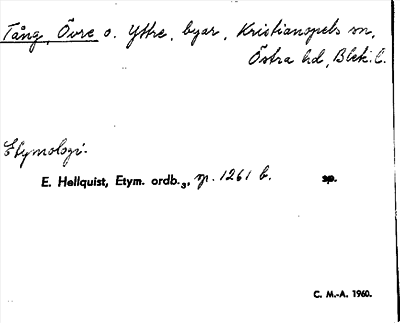 Tång, Övre o. Yttre, byar, Kristianopels sn,
Östra hd, Blek. l.
Etymologi.
E. Hellquist, Etym. ordb.3, sp. 1261 b. sp.
C. M.-A. 1960.